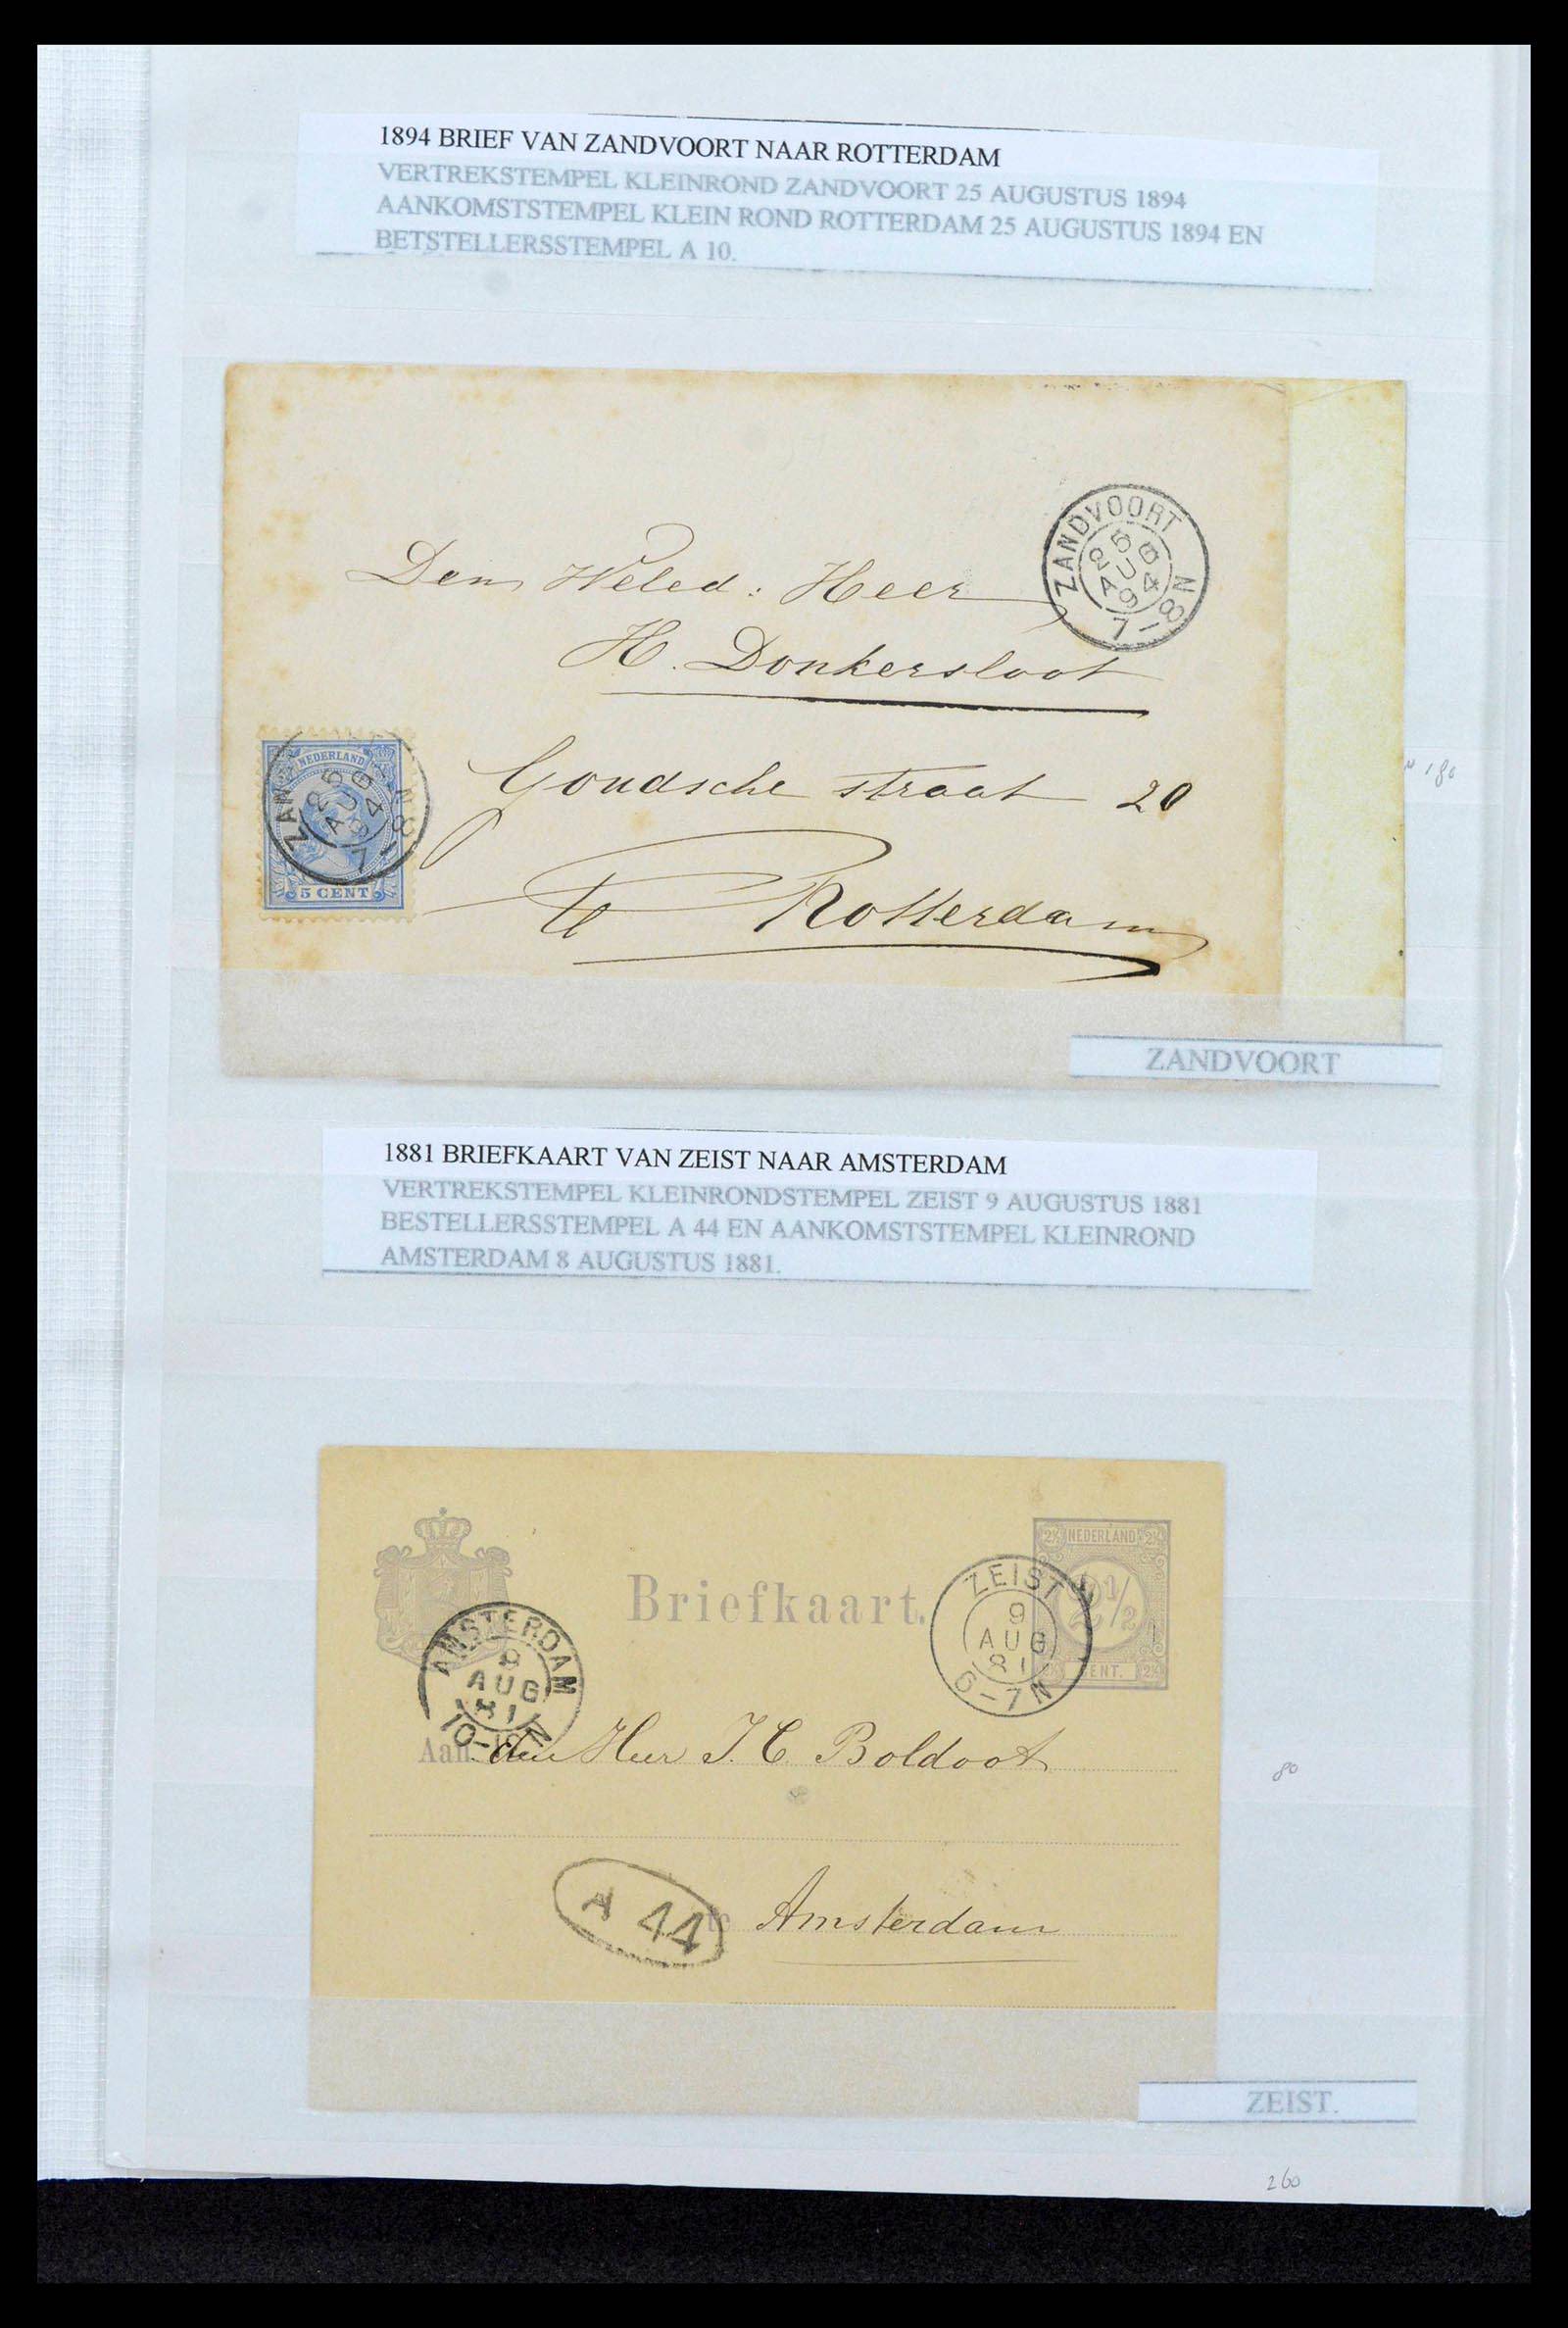 1894 BRIEF VAN ZANDVOORT NAAR ROTTERDAM
VERTREKSTEMPEL KLEINROND ZANDVOORT 25 AUGUSTUS 1894
AANKOMSTSTEMPEL KLEIN ROND ROTTERDAM 25 AUGUSTUS 1894 EN
BETSTELLERSSTEMPEL A 10.
ZANDVOORT
25 AUG 94
7-8 N
Den Weled: Heer
H. Donkersloot
NEDERLAND
5 CENT
ZAN
25 AUG 94
7-8 N
Goudsche straat 20
te Rotterdam
180
ZANDVOORT
1881 BRIEFKAART VAN ZEIST NAAR AMSTERDAM
VERTREKSTEMPEL KLEINRONDSTEMPEL ZEIST 9 AUGUSTUS 1881
BESTELLERSSTEMPEL A 44 EN AANKOMSTSTEMPEL KLEINROND
AMSTERDAM 8 AUGUSTUS 1881.
2½ NEDERLAND 2½
2½
CENT. 2½
Briefkaart.
ZEIST
9
AUG
81
6-7 N
AMSTERDAM
AUG
81
Aan den Heer J. C. Boldoot
80
A 44
te Amsterdam
ZEIST.
260